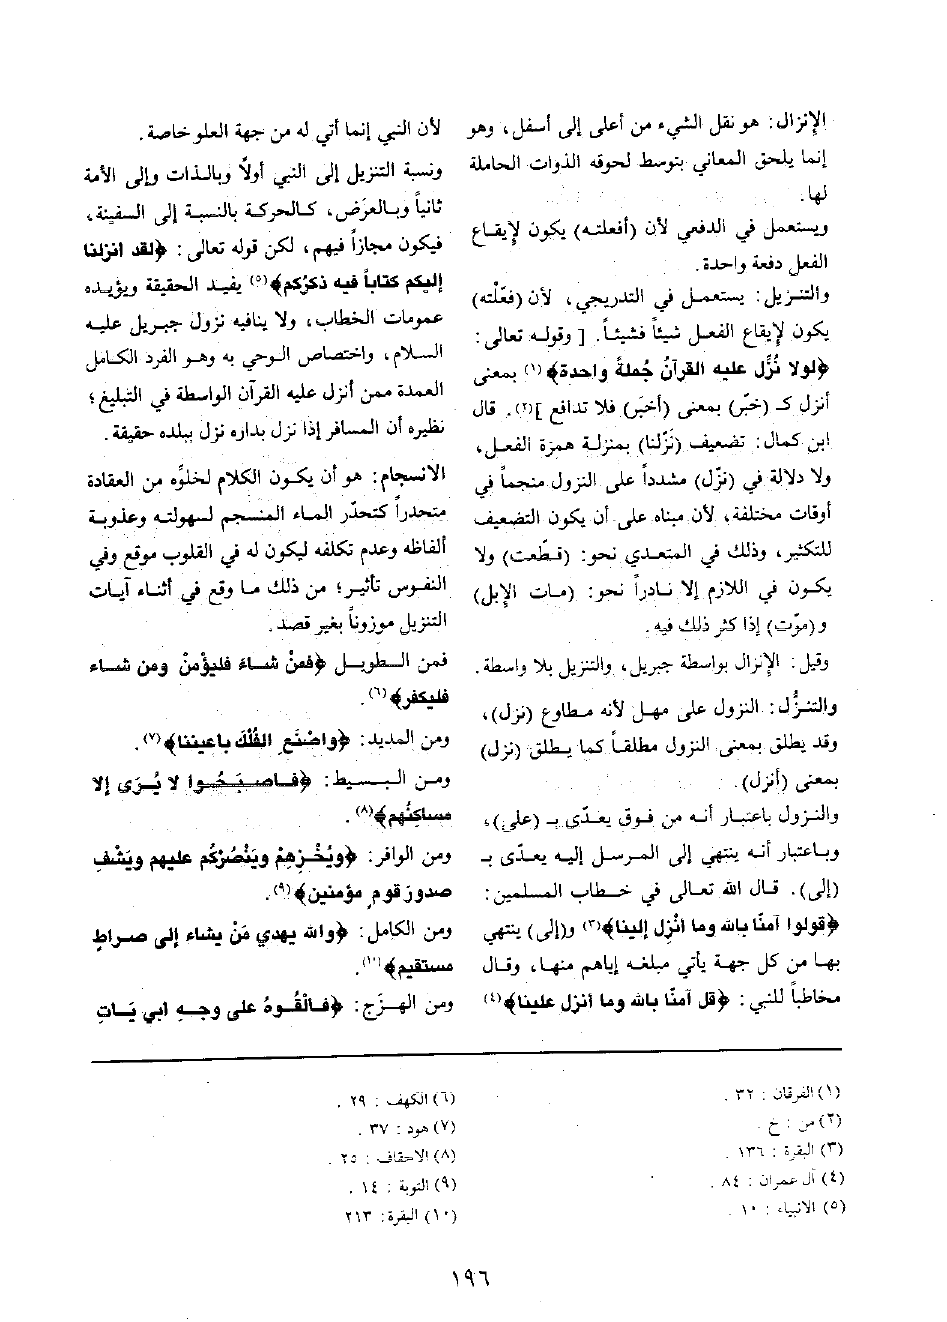 الإنزال: هو نقل الشيء من أعلى إلى أسفل، وهو
إنما يلحق المعاني بتوسط لحوقه الذوات الحاملة
لها.
ويستعمل في الدفعي لأن (أفعلته) يكون لإيقاع
الفعل دفعة واحدة.
والتنزيل: يستعمل في التدريجي، لأن (فعّلته)
يكون لإيقاع الفعل شيئاً فشيئاً. [ وقوله تعالى:
﴿لولا نُزِّل عليه القرآنُ جُملةً واحدة﴾(١) بمعنى
أنزل كـ (خبّر) بمعنى (أخبَر) فلا تدافع ](٢). قال
ابن كمال: تضعيف (نَزّلنا) بمنزلة همزة الفعل،
ولا دلالة في (نزّل) مشدداً على النزول منجماً في
أوقات مختلفة، لأن مبناه على أن يكون التضعيف
للتكثير، وذلك في المتعدي نحو: (قطّعت) ولا
يكون في اللازم إلا نادراً نحو: (مات الإبل)
و(موّت) إذا كثر ذلك فيه.
وقيل: الإنزال بواسطة جبريل، والتنزيل بلا واسطة.
والتنزُّل: النزول على مهل لأنه مطاوع (نزل)،
وقد يطلق بمعنى النزول مطلقاً كما يطلق (نزل)
بمعنى (أنزل).
والنزول باعتبار أنه من فوق يعدّى بـ (على)،
وباعتبار أنه ينتهي إلى المرسل إليه يعدّى بـ
(إلى). قال الله تعالى في خطاب المسلمين:
﴿قولوا آمنّا بالله وما أنْزِل إلينا﴾(٣) و(إلى) ينتهي
بها من كل جهة يأتي مبلغه إياهم منها، وقال
مخاطباً للنبي: ﴿قل آمنّا بالله وما أنزل علينا﴾(٤)
لأن النبي إنما أتي له من جهة العلو خاصة.
ونسبة التنزيل إلى النبي أولاً وبالذات وإلى الأمة
ثانياً وبالعرَض، كالحركة بالنسبة إلى السفينة،
فيكون مجازاً فيهم، لكن قوله تعالى: ﴿لقد انزلنا
إليكم كتاباً فيه ذكرُكم﴾(٥) يفيد الحقيقة ويؤيده
عمومات الخطاب، ولا ينافيه نزول جبريل عليه
السلام، واختصاص الوحي به وهو الفرد الكامل
العمدة ممن أنزل عليه القرآن الواسطة في التبليغ؛
نظيره أن المسافر إذا نزل بداره نزل ببلده حقيقة.
الانسجام: هو أن يكون الكلام لخلوّه من العقادة
متحدراً كتحدّر الماء المنسجم لسهولته وعذوبة
ألفاظه وعدم تكلفه ليكون له في القلوب موقع وفي
النفوس تأثير؛ من ذلك ما وقع في أثناء آيات
التنزيل موزوناً بغير قصد.
فمن الطويل ﴿فمنْ شاءَ فليؤمنْ ومن شاء
فليكفر﴾(٦).
ومن المديد: ﴿واصْنَعِ الفُلْكَ باعيننا﴾(٧).
ومن البسيط: ﴿فاصبَحُوا لا يُرَى إلا
مساكِنُهم﴾(٨).
ومن الوافر: ﴿ويُخْزِهِمْ ويَنْصُرْكُم عليهم ويَشْفِ
صدورَ قومٍ مؤمنين﴾(٩).
ومن الكامل: ﴿والله يهدي مَنْ يشاء إلى صراطٍ
مستقيم﴾(١٠).
ومن الهزَج: ﴿فالْقُوهُ على وجهِ ابي يَاتِ
(١) الفرقان: ٣٢.
(٢) من: خ.
(٣) البقرة: ١٣٦.
(٤) آل عمران: ٨٤.
(٥) الانبياء: ١٠.
(٦) الكهف: ٢٩.
(٧) هود: ٣٧.
(٨) الاحقاف: ٢٥.
(٩) التوبة: ١٤.
(١٠) البقرة: ٢١٣
١٩٦